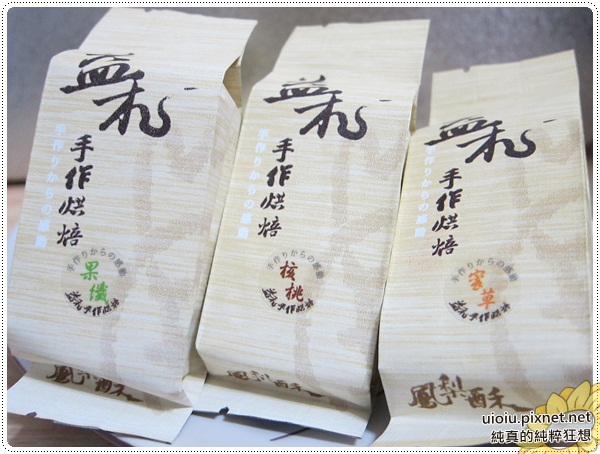 益利
手作烘焙
手作りからの感動
手作りからの感動
果儂
益利手作烘焙
鳳梨酥
益利
手作烘焙
手作りからの感動
手作りからの感動
核桃
益利手作烘焙
鳳梨酥
益利
手作烘焙
手作りからの感動
手作りからの感動
蜜草
益利手作烘焙
鳳梨酥
uioiu.pixnet.net
純真的純粹狂想